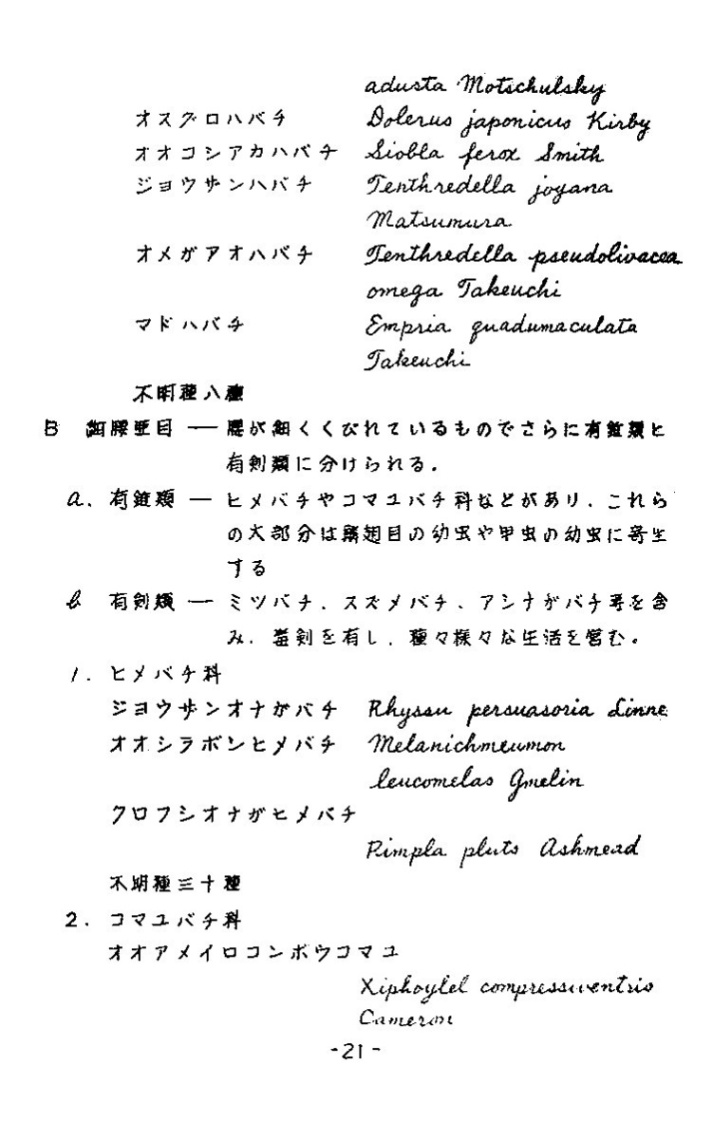 adusta Motschulsky
オスグロハバチ Dolerus japonicus Kirby
オオコシアカハバチ Siobla ferox Smith
ジョウザンハバチ Tenthredella joyana
Matsumura
オメガアオハバチ Tenthredella pseudolivacea
omega Takeuchi
マドハバチ Empria quadumaculata
Takeuchi
不明種八種
B 細腰亜目 — 腰が細くくびれているものでさらに有錐類と
有剣類に分けられる.
a. 有錐類 — ヒメバチやコマユバチ科などがあり、これら
の大部分は鱗翅目の幼虫や甲虫の幼虫に寄生
する
b 有剣類 — ミツバチ、スズメバチ、アシナガバチ等を含
み、毒剣を有し、種々様々な生活を営む。
1. ヒメバチ科
ジョウザンオナガバチ Rhyssau persuasoria Linne
オオシラボシヒメバチ Melanichmeumon
leucomelas Gmelin
クロフシオナガヒメバチ
Pimpla pluto Ashmead
不明種三十種
2. コマユバチ科
オオアメイロコンボウコマユ
Xiphoylel compressiventris
Cameron
-21-